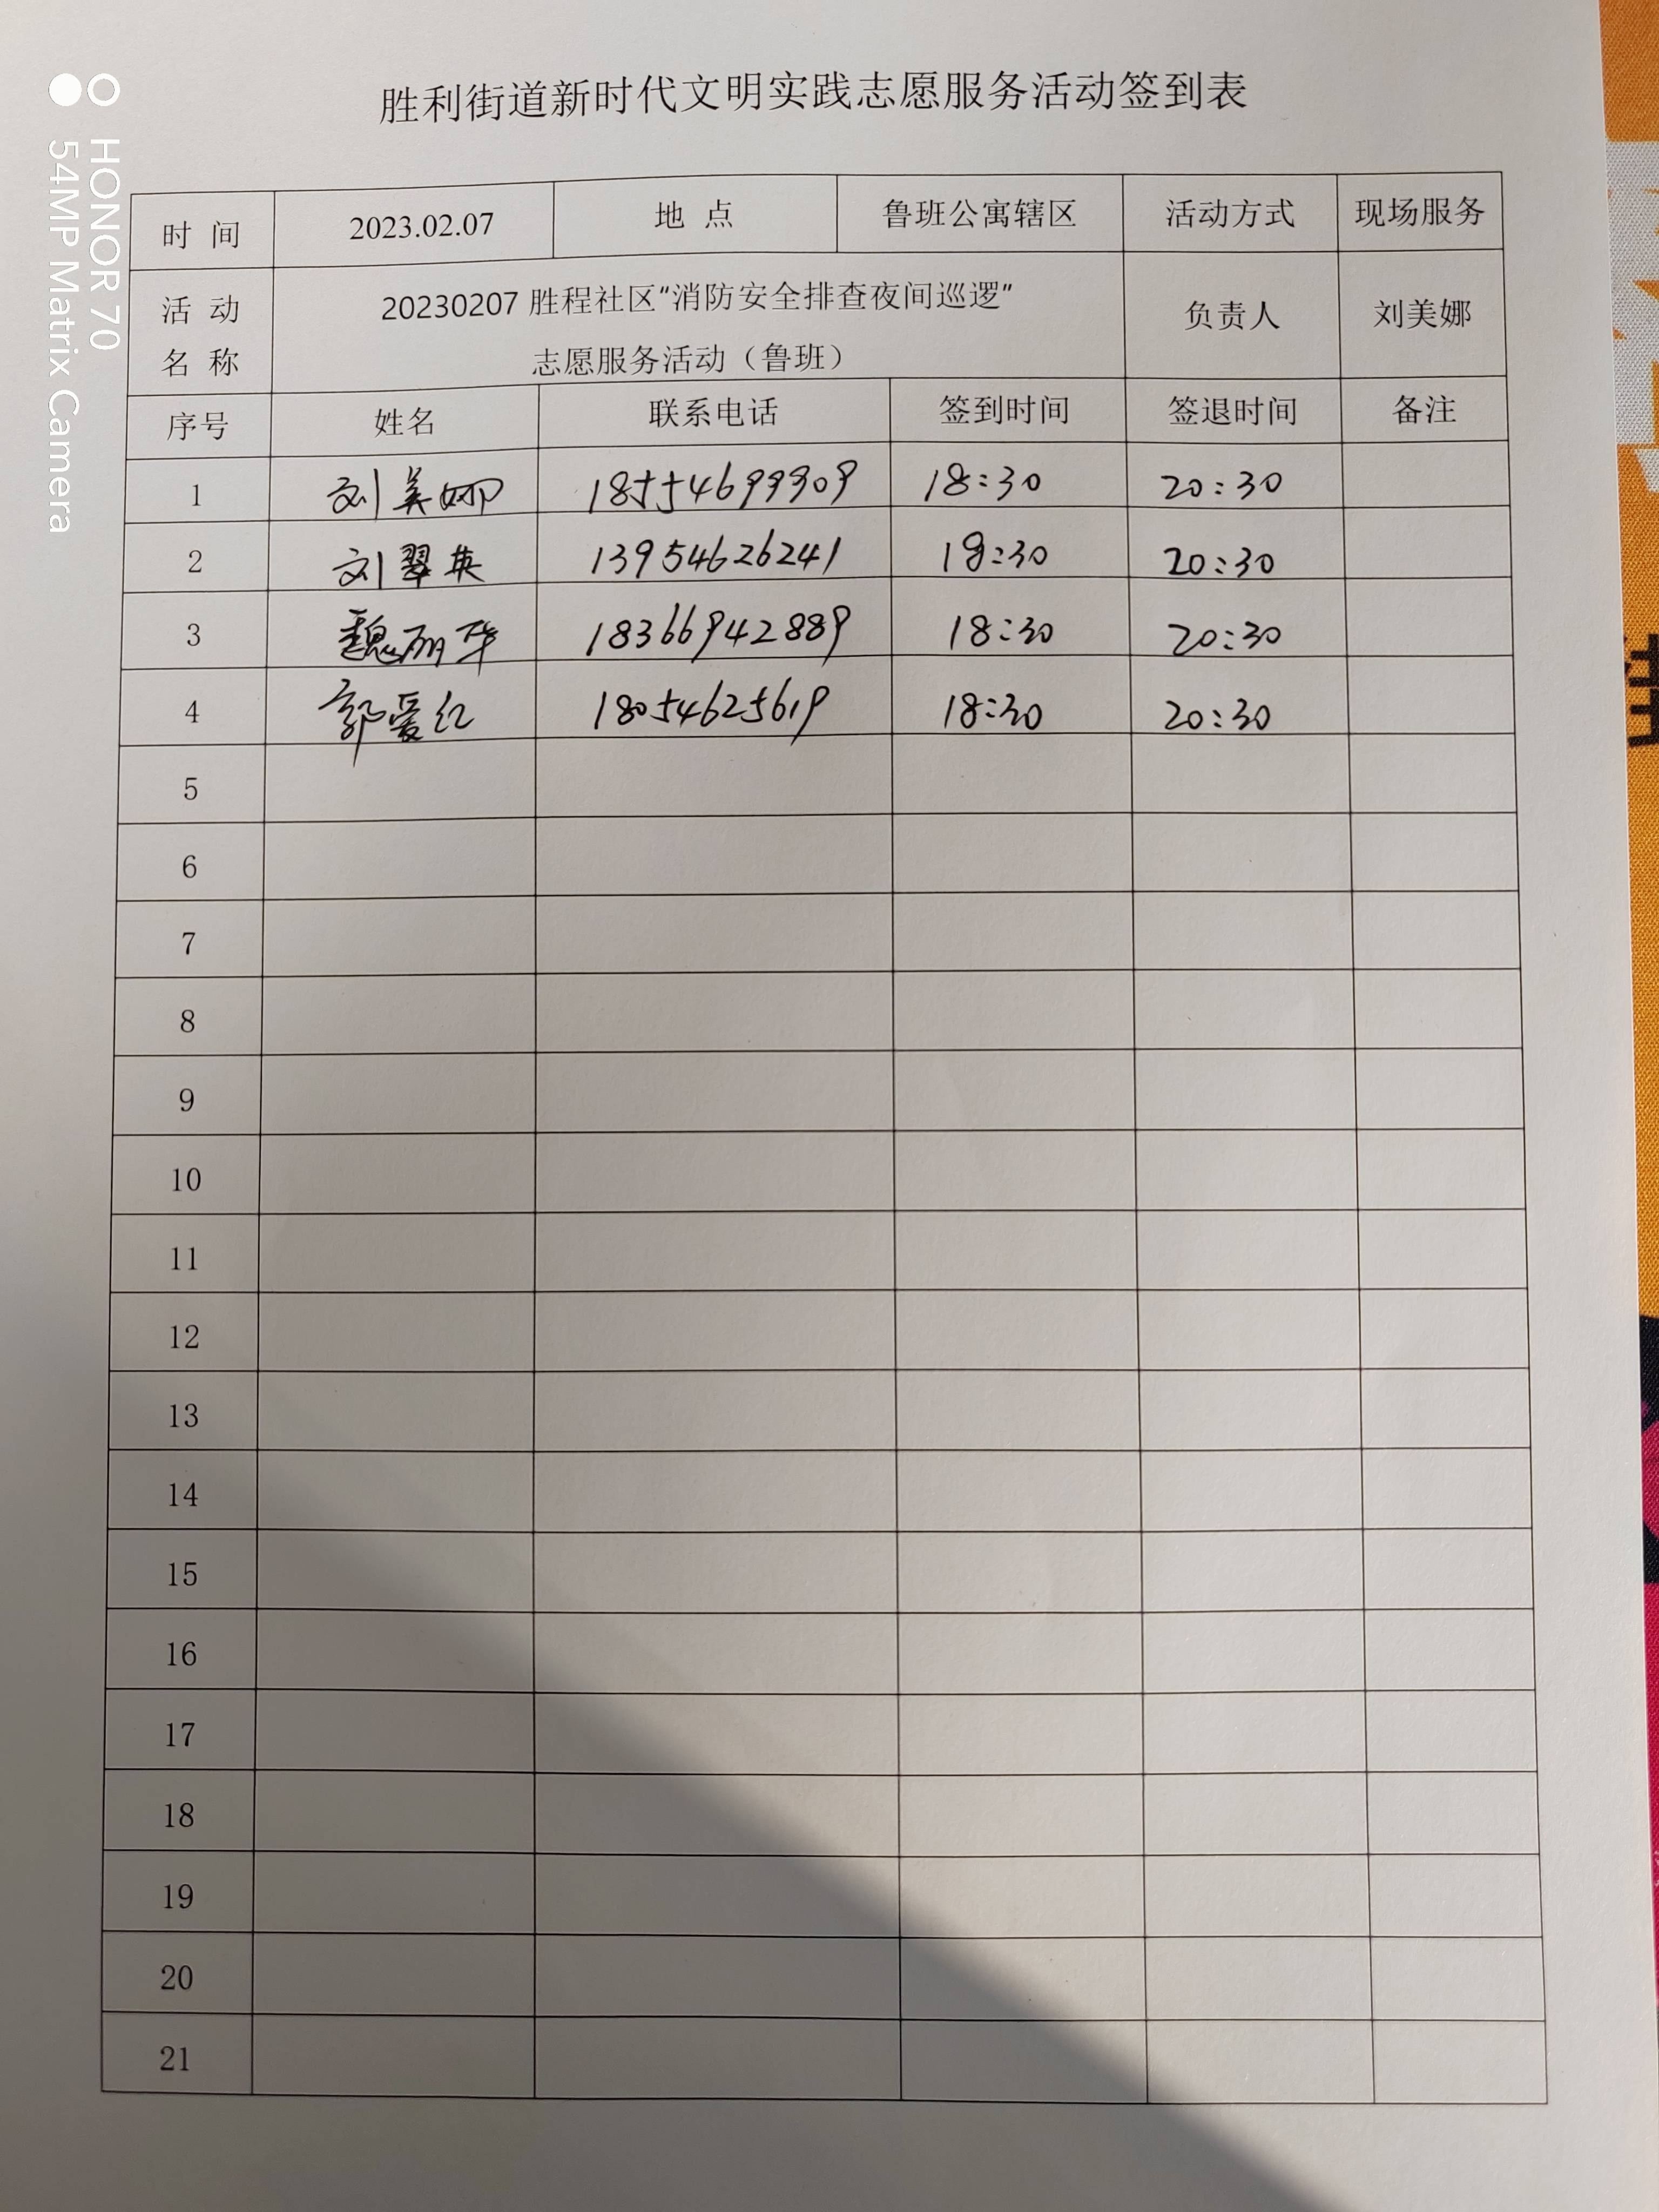 胜利街道新时代文明实践志愿服务活动签到表
时 间 2023.02.07 地 点 鲁班公寓辖区 活动方式 现场服务
活 动 名 称 20230207 胜程社区“消防安全排查夜间巡逻” 负责人 刘美娜
志愿服务活动（鲁班）
序号 姓名 联系电话 签到时间 签退时间 备注
1 刘美娜 18554699909 18:30 20:30
2 刘翠英 13954626241 18:30 20:30
3 魏丽华 18366942889 18:30 20:30
4 郭爱红 18054625619 18:30 20:30
5
6
7
8
9
10
11
12
13
14
15
16
17
18
19
20
21
HONOR 70
54MP Matrix Camera